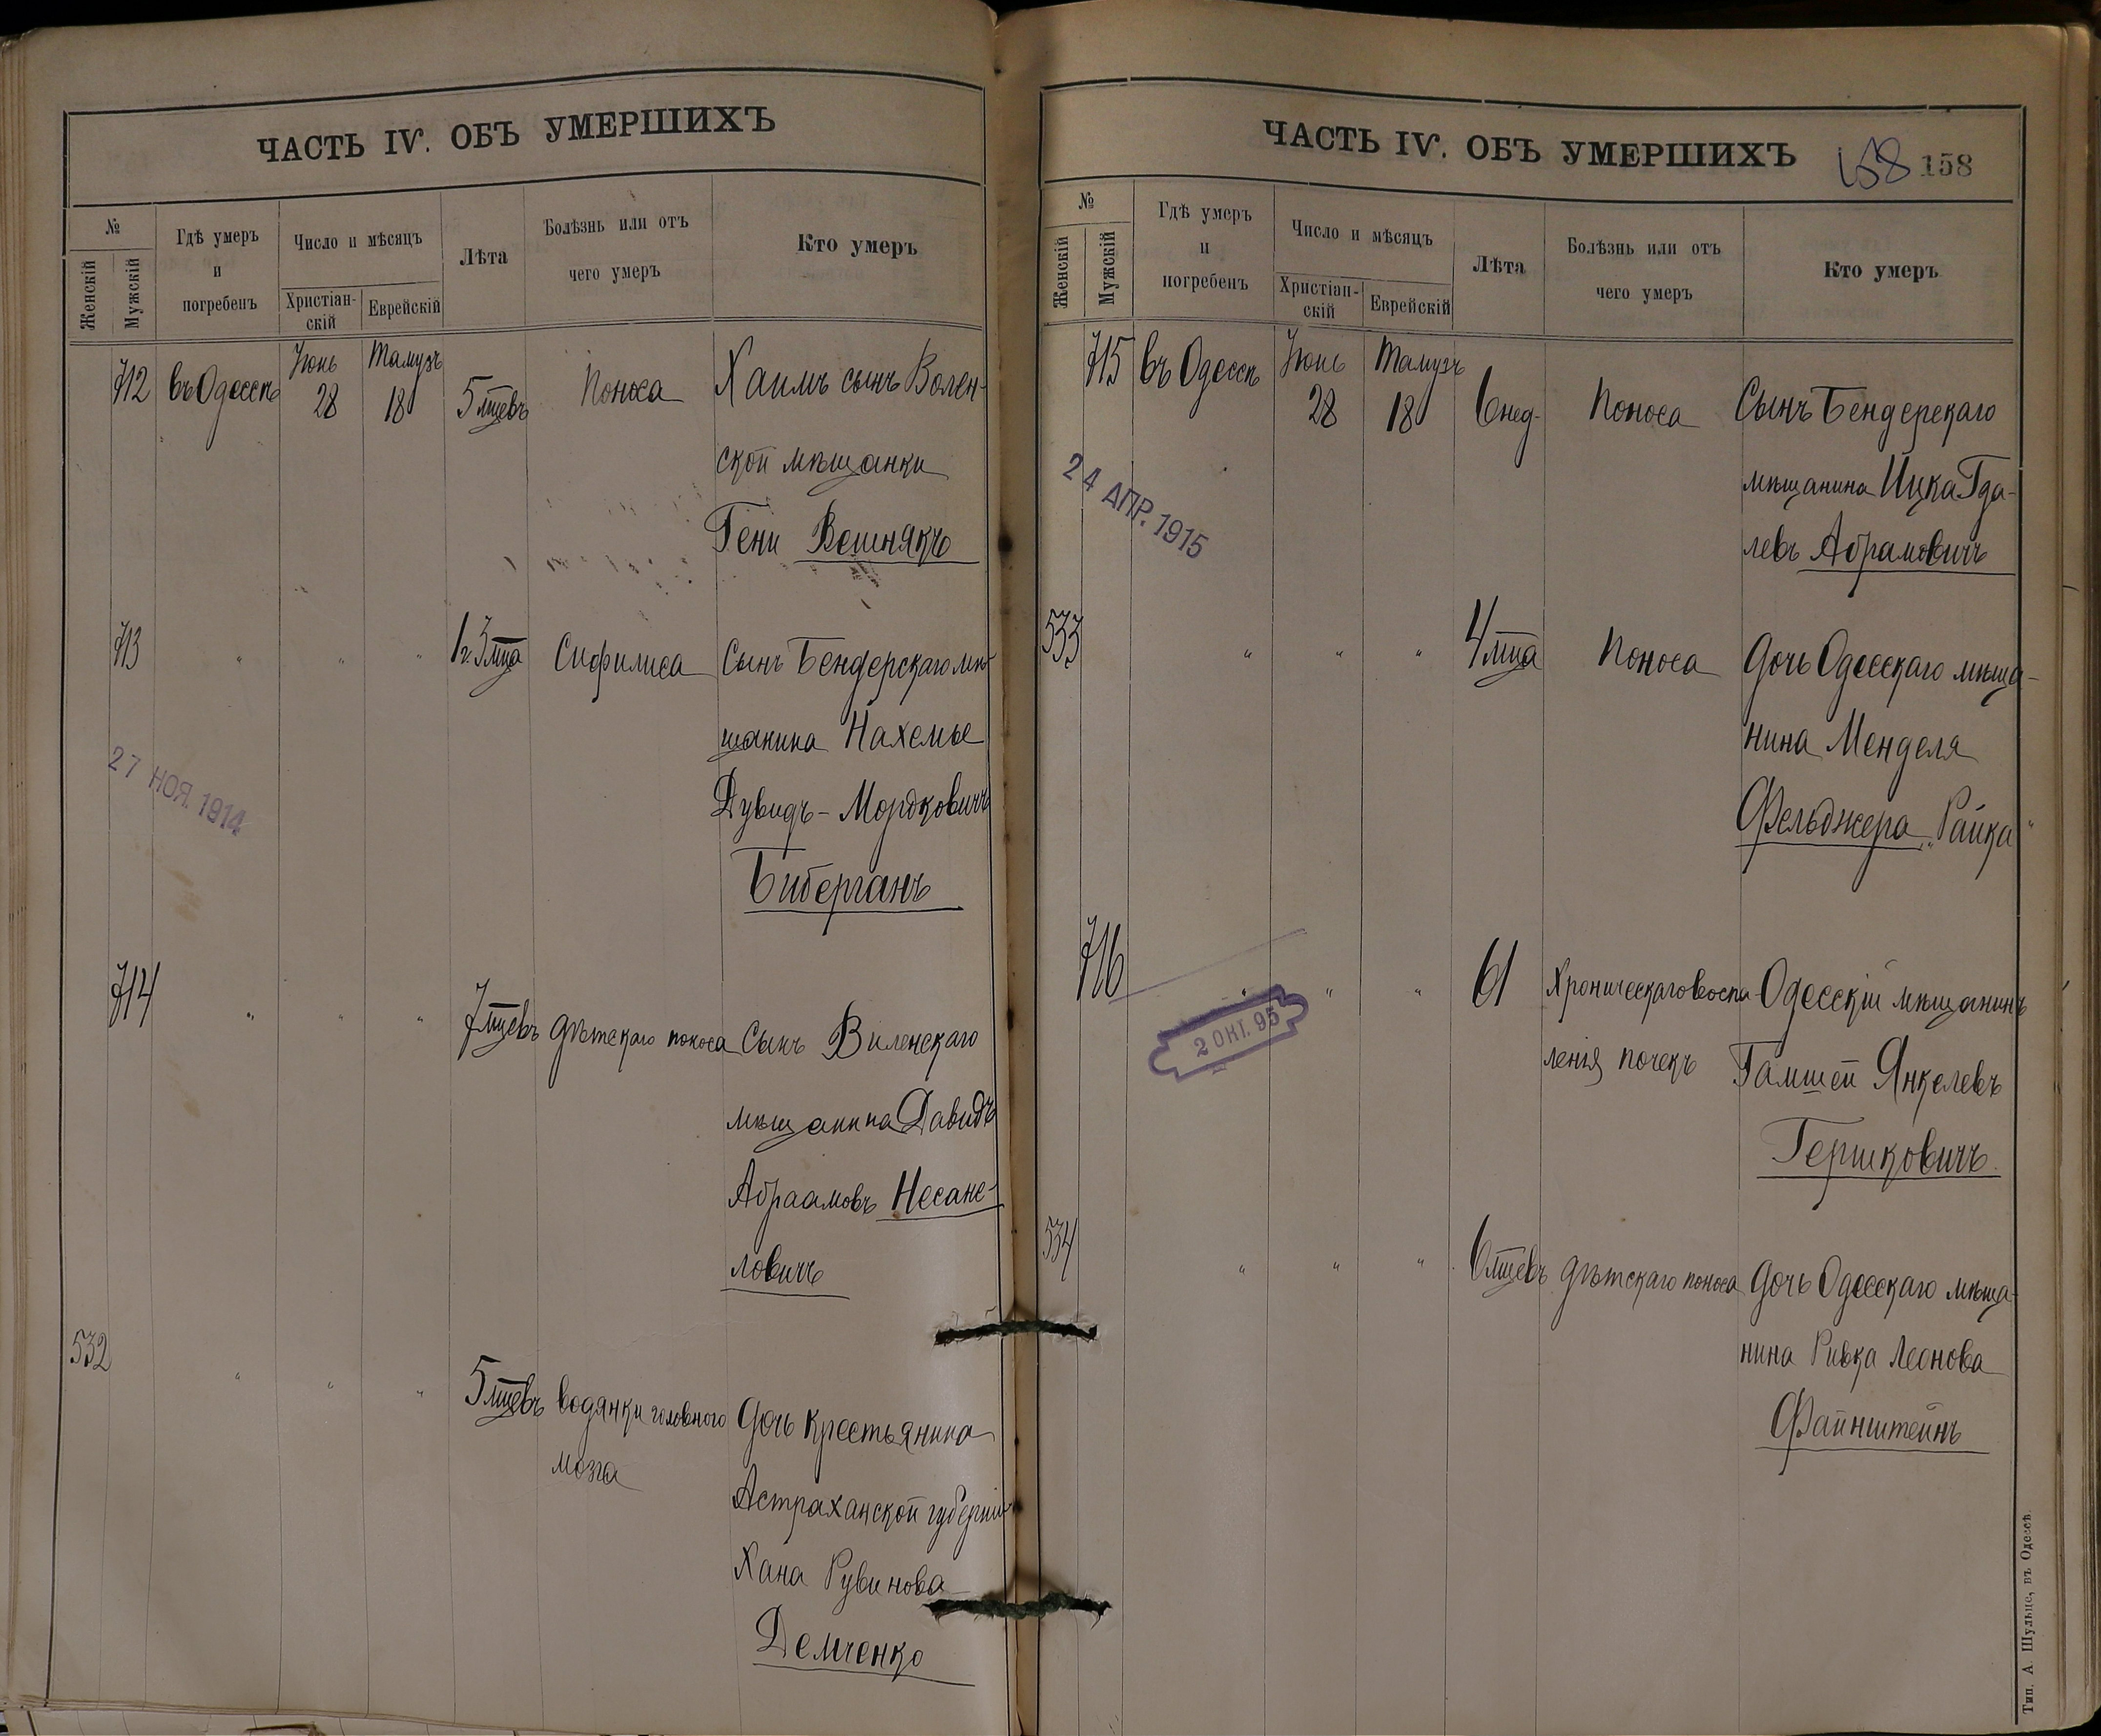 ЧАСТЬ IV. ОБЪ УМЕРШИХЪ
№
Женскій
Мужскій
Гдѣ умеръ
и
погребенъ
Число и мѣсяцъ
Христіан-
скій
Еврейскій
Лѣта
Болѣзнь или отъ
чего умеръ
Кто умеръ
Іюнь Тамузъ
712 въ Одессѣ 28 18 5 мцевъ Поноса Хаимъ сынъ Волен-
ской мѣщанки
Гени Вешнякъ
713 " " " 1 г. 3 мца Сифилиса Сынъ Бендерскаго мѣ-
щанина Нахемье
Дувидъ-Мордковичъ
Биберганъ
27 НОЯ. 1914
714 " " " 7 мцевъ дѣтскаго поноса Сынъ Виленскаго
мѣщанина Давидъ
Абраамовъ Несане-
ловичъ
532 " " " 5 мцевъ водянки головного дочь крестьянина
мозга
Астраханской губерніи
Хана Рувинова
Демченко
ЧАСТЬ IV. ОБЪ УМЕРШИХЪ
158 158
№
Женскій
Мужскій
Гдѣ умеръ
и
погребенъ
Число и мѣсяцъ
Христіан-
скій
Еврейскій
Лѣта
Болѣзнь или отъ
чего умеръ
Кто умеръ
Іюнь Тамузъ
715 въ Одессѣ 28 18 6 нед. Поноса Сынъ Бендерскаго
мѣщанина Ицка Гда-
левъ Абрамовичъ
24 АПР. 1915
533 " " " 4 мца Поноса дочь Одесскаго мѣща-
нина Менделя
Фельджера „Райка"
716 " " " 61 Хроническаго воспа- Одесскій мѣщанинъ
ленія почекъ Гамшей Янкелевъ
Гершковичъ
2 ОКТ. 95
534 " " " 6 мцевъ дѣтскаго поноса дочь Одесскаго мѣща-
нина Ривка Леонова
Файнштейнъ
Тип. А. Шульце, въ Одессѣ.